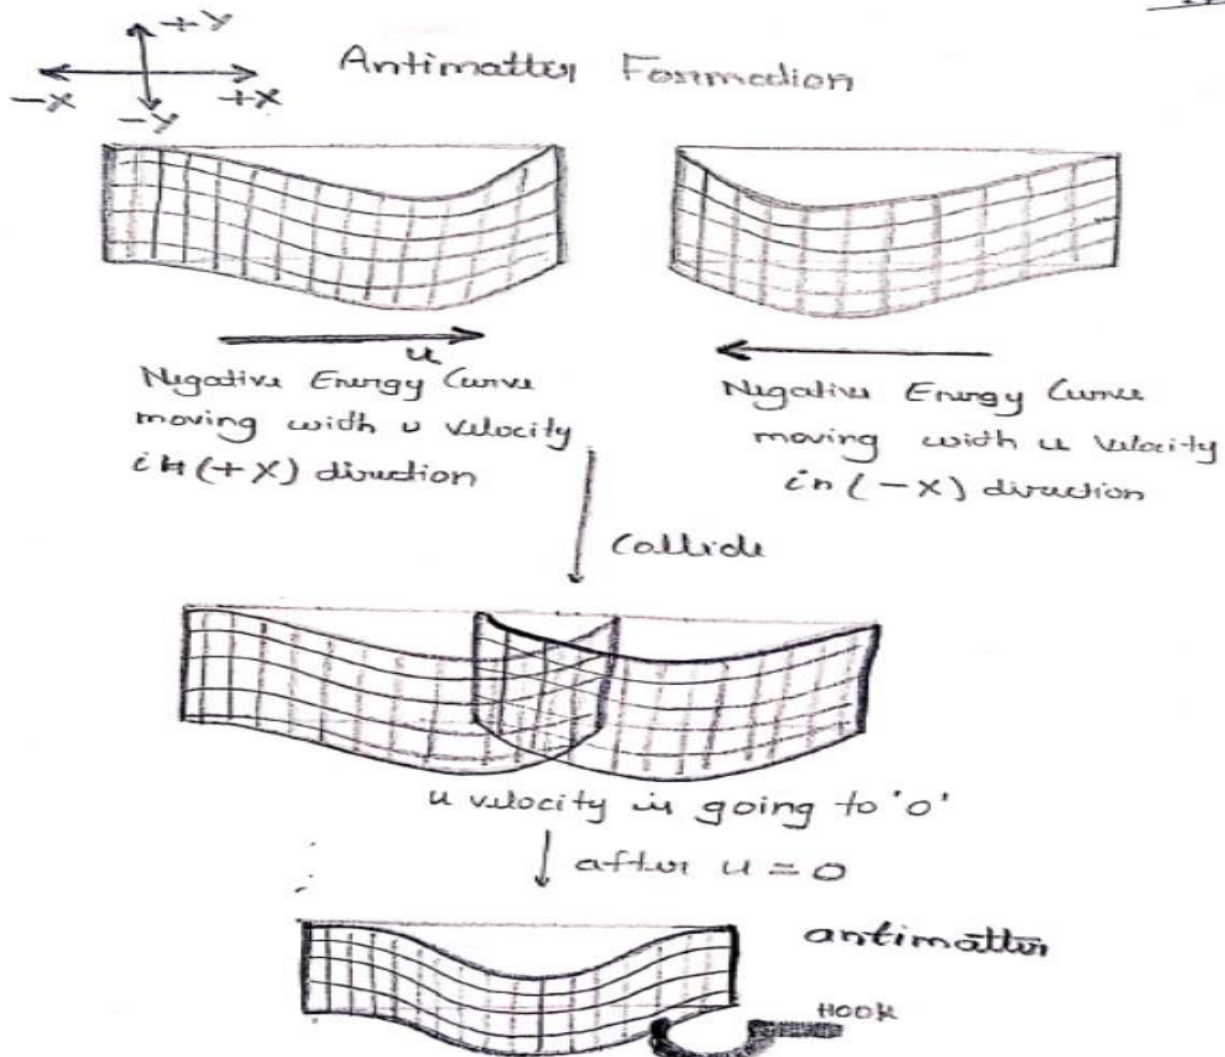 +Y
Antimatter Formation
-X +X
-Y
u
Negative Energy Curve
moving with u velocity
in (+X) direction
Negative Energy Curve
moving with u velocity
in (-X) direction
Collide
u velocity is going to 'o'
after u = 0
antimatter
HOOK